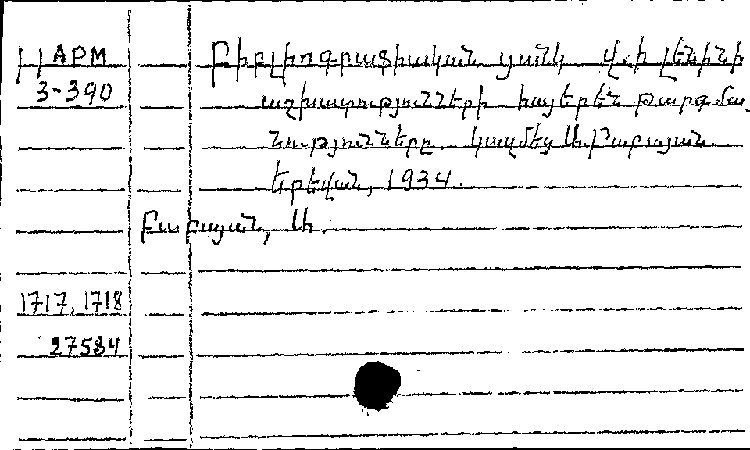 АРМ
3-390
Բիբլիոգրաֆիական ցանկ Վ.Ի Լենինի
աշխատությունների հայերեն թարգմա-
նությունները. կազմեց Ա. Բաբայան
Երեվան, 1934.
Բաբայան, Ա.
1717, 1718
27584